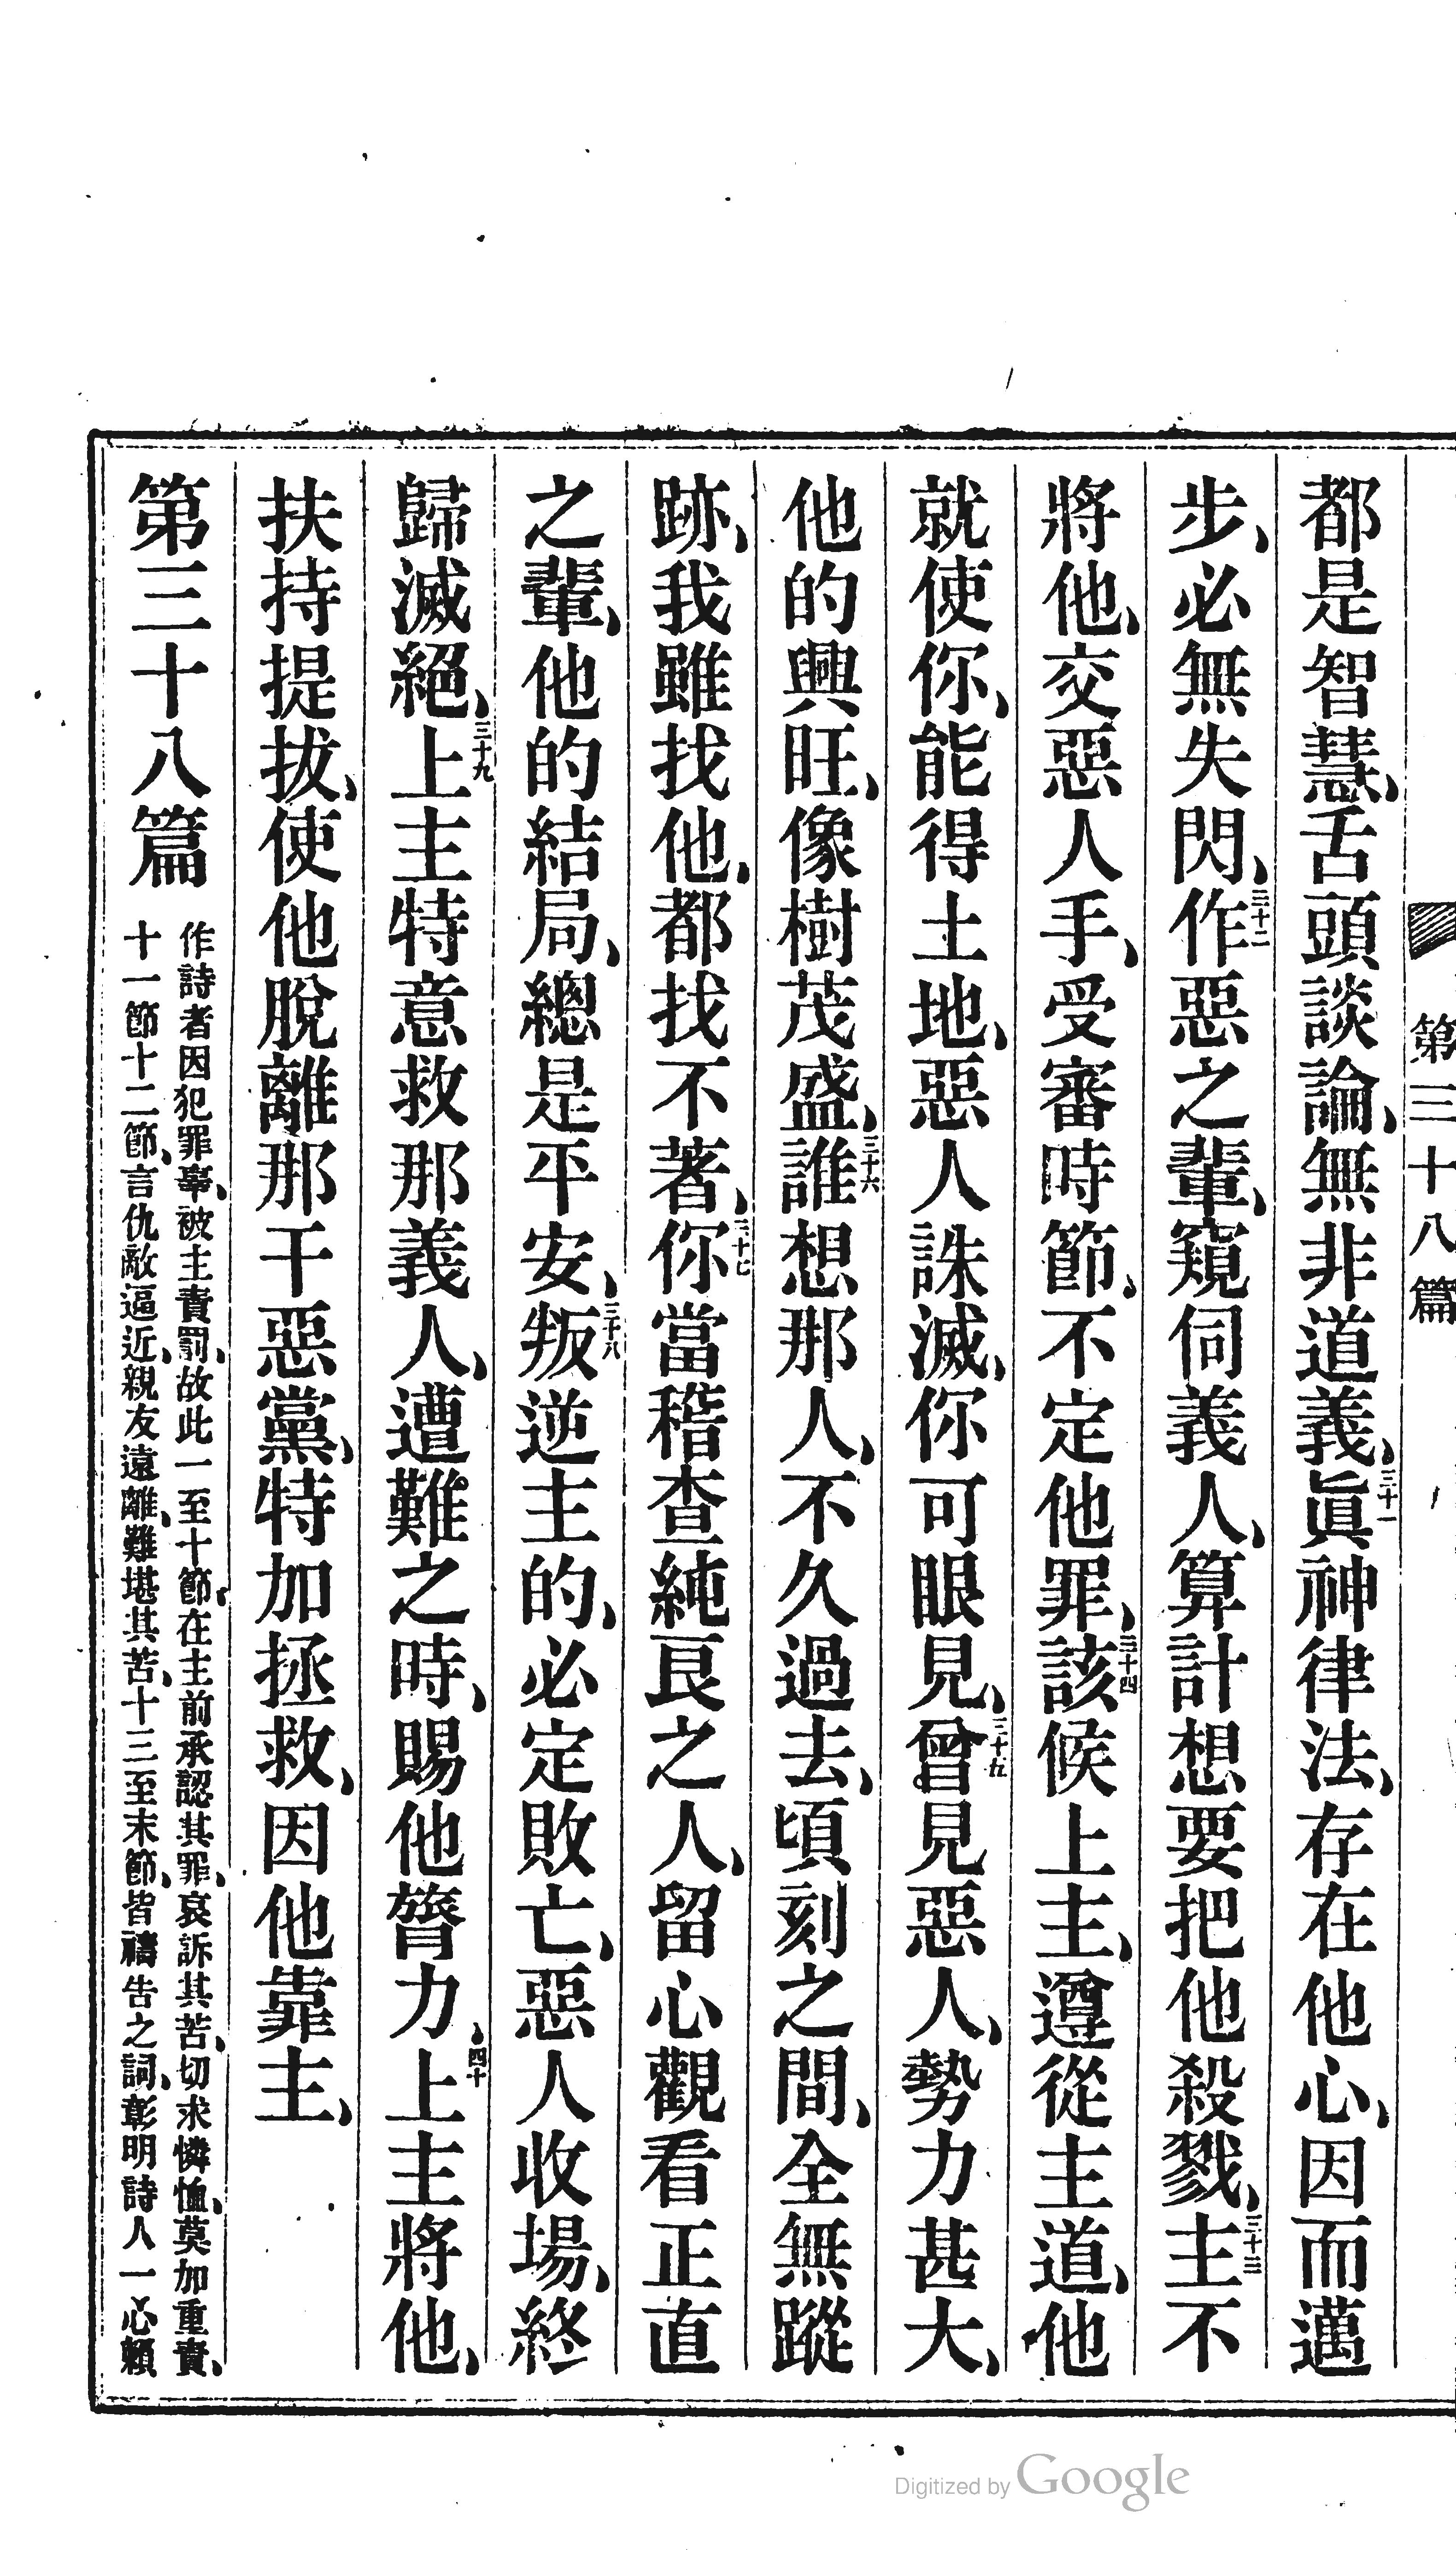 第三十八篇
都是智慧、舌頭談論、無非道義、三十一眞神律法、存在他心、因而邁
步、必無失閃、三十二作惡之輩、窺伺義人、算計想要把他殺戮、三十三主不
將他、交惡人手、受審時節、不定他罪、三十四該候上主、遵從主道、他
就使你、能得土地、惡人誅滅、你可眼見、三十五曾見惡人、勢力甚大、
他的興旺、像樹茂盛、三十六誰想那人、不久過去、頃刻之間、全無蹤
跡、我雖找他、都找不著、三十七你當稽查純良之人、留心觀看正直
之輩、他的結局、總是平安、三十八叛逆主的、必定敗亡、惡人收場、終
歸滅絕、三十九上主特意救那義人、遭難之時、賜他膂力、四十上主將他、
扶持提拔、使他脫離那干惡黨、特加拯救、因他靠主、
第三十八篇
作詩者因犯罪辜、被主責罰、故此一至十節、在主前承認其罪、哀訴其苦、切求憐恤、莫加重責、
十一節十二節、言仇敵逼近、親友遠離、難堪其苦、十三至末節、皆禱告之詞、彰明詩人一心賴
Digitized by Google